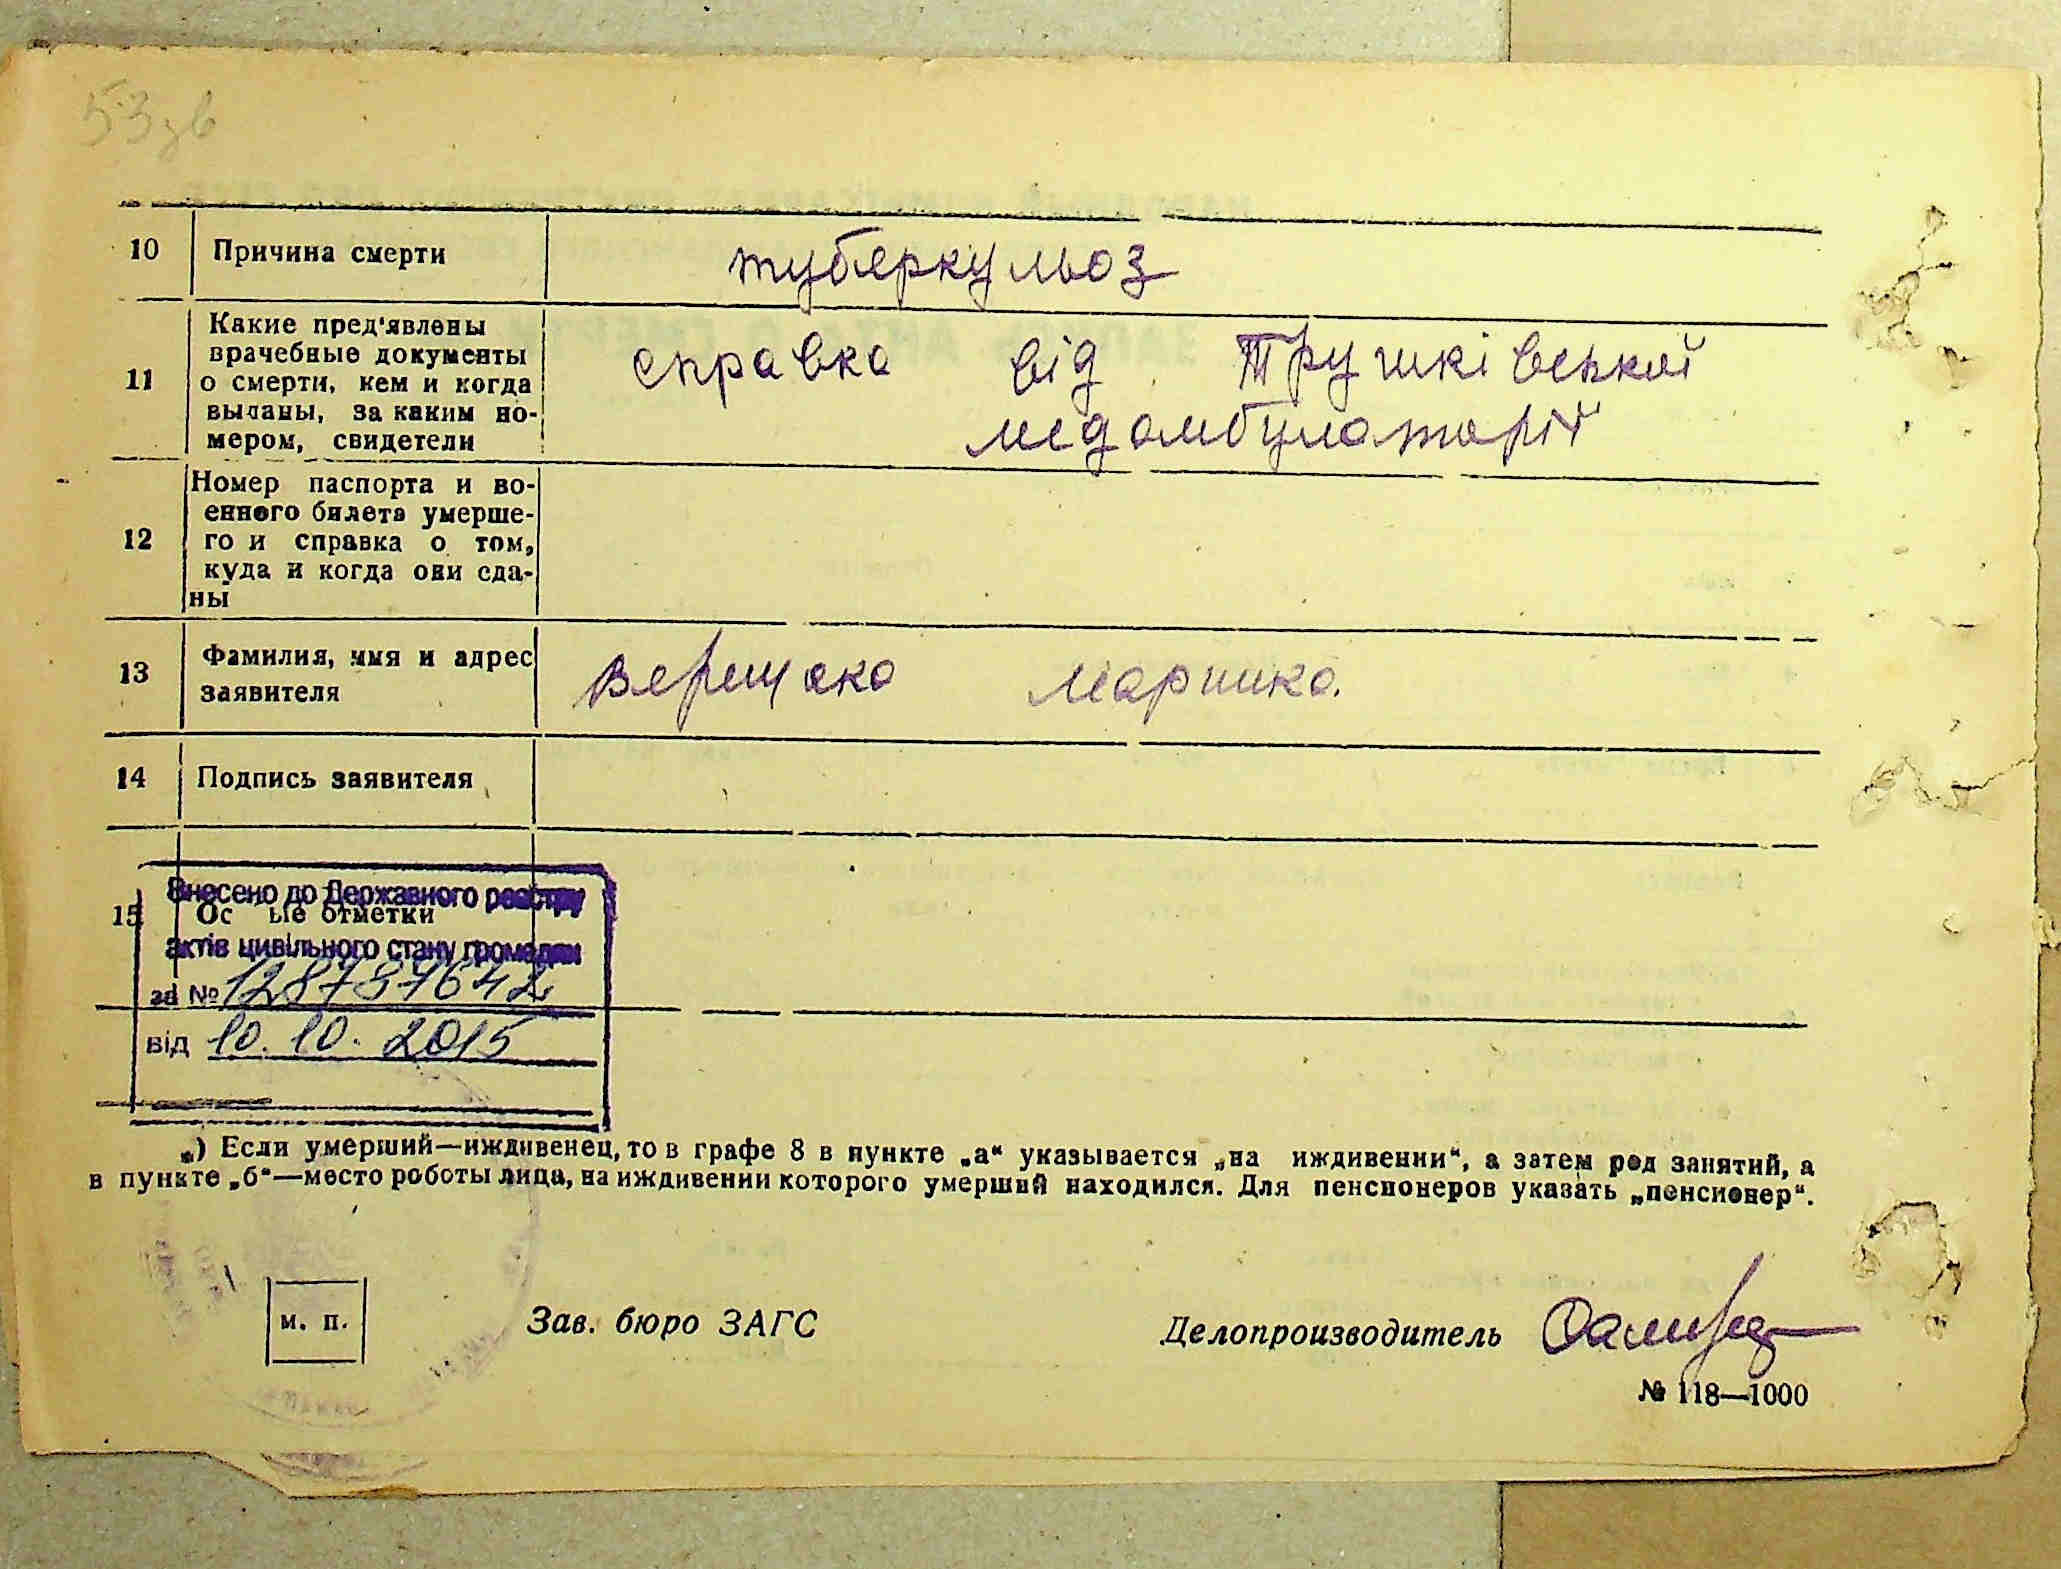 53зв
10 Причина смерти туберкульоз
11 Какие пред'явлены
врачебные документы
о смерти, кем и когда
выданы, за каким но-
мером, свидетели
справка від Трушківської
медамбулаторії
12 Номер паспорта и во-
енного билета умерше-
го и справка о том,
куда и когда они сда-
ны
13 Фамилия, имя и адрес
заявителя
Верещака Маришка.
14 Подпись заявителя
Внесено до Державного реєстру
15 Ос ые отметки
актів цивільного стану громадян
за № 128787642
від 10.10.2015
*) Если умерший—иждивенец, то в графе 8 в пункте „а“ указывается „на иждивении“, а затем род занятий, а
в пункте „б“—место роботы лица, на иждивении которого умерший находился. Для пенсионеров указать „пенсионер“.
м. п. Зав. бюро ЗАГС Делопроизводитель
№ 118—1000